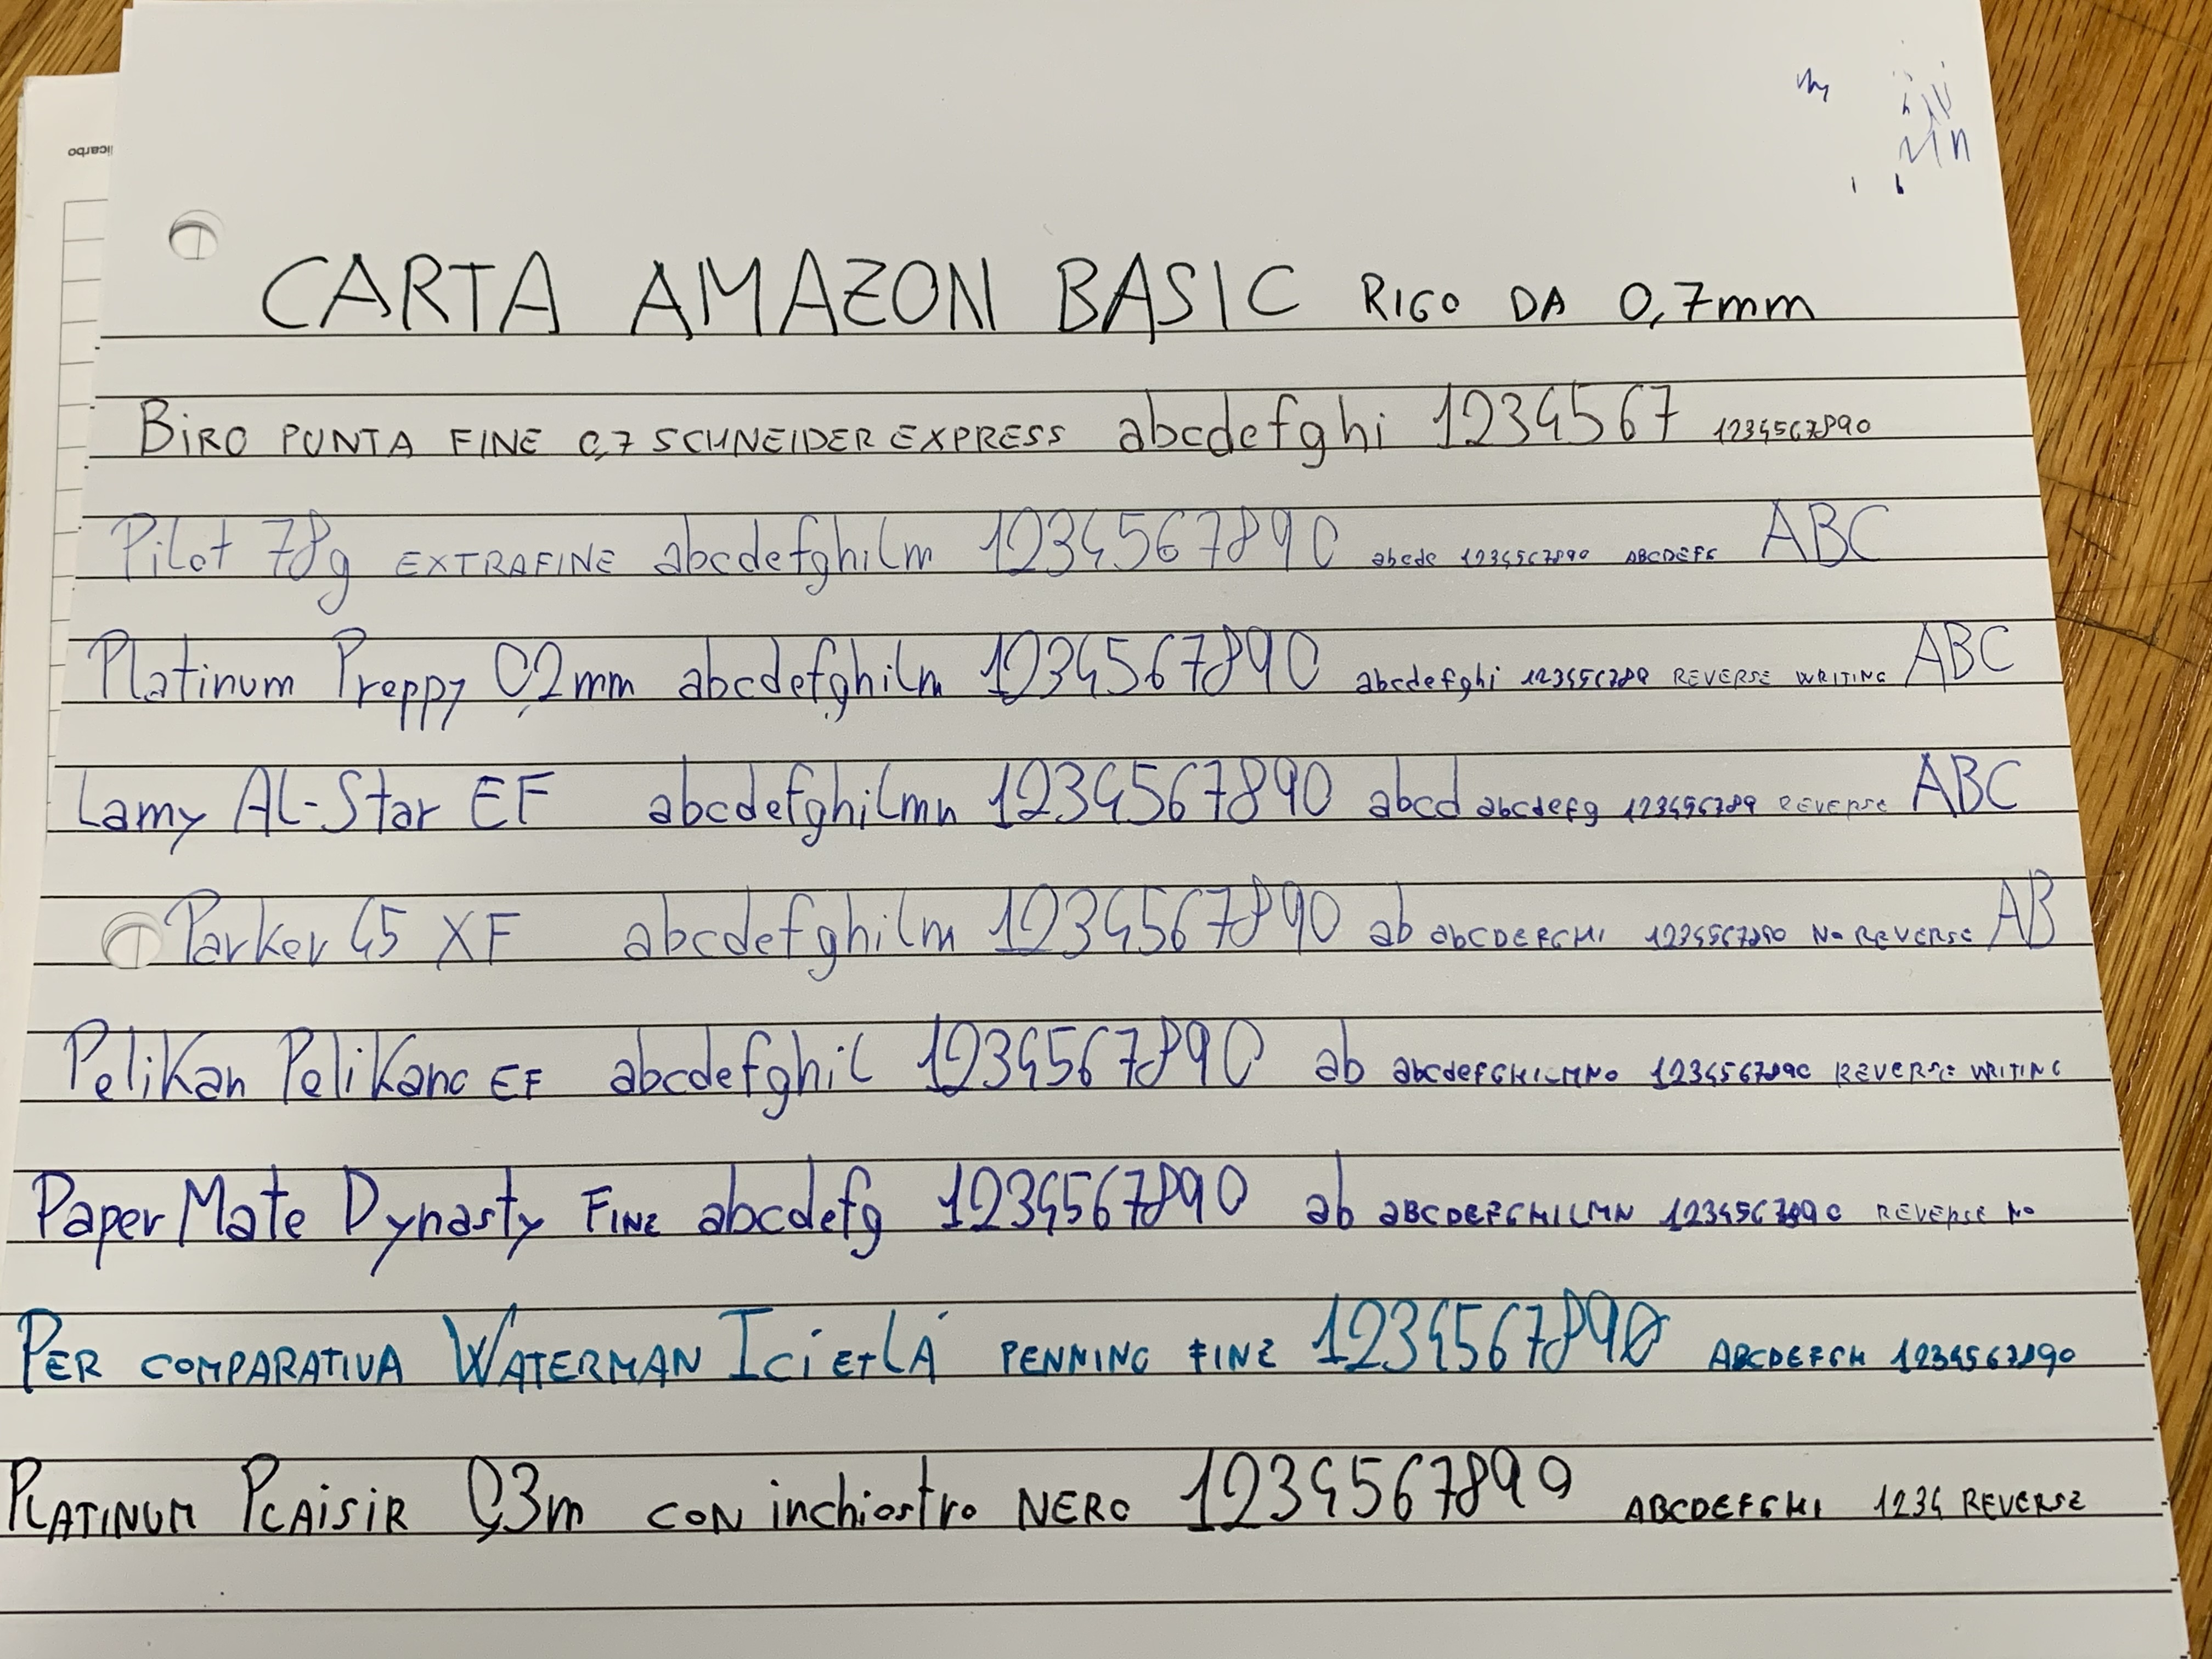 licarbo
CARTA AMAZON BASIC RIGO DA 0,7mm
BIRO PUNTA FINE 0,7 SCHNEIDER EXPRESS abcdefghi 1234567 1234567890
Pilot 78g EXTRAFINE abcdefghilm 1234567890 abcde 1234567890 ABCDEFG ABC
Platinum Preppy 0,2mm abcdefghilm 1234567890 abcdefghi 123456789 REVERSE WRITING ABC
Lamy AL-Star EF abcdefghilmn 1234567890 abcd abcdefg 123456789 REVERSE ABC
Parker 45 XF abcdefghilm 1234567890 ab abCDEFGHI 1234567890 No REVERSE AB
Pelikan Pelikano EF abcdefghil 1234567890 ab abcdeFGHILMNO 1234567890 REVERSE WRITING
PaperMate Dynasty FINE abcdefg 1234567890 ab ABCDEFGHILMN 1234567890 REVERSE NO
PER COMPARATIVA WATERMAN ICI Et LÁ PENNINO FINE 1234567890 ABCDEFGH 1234567890
PLATINUM PLAISIR 0,3m CON inchiostro NERO 1234567899 ABCDEFGHI 1234 REVERSE